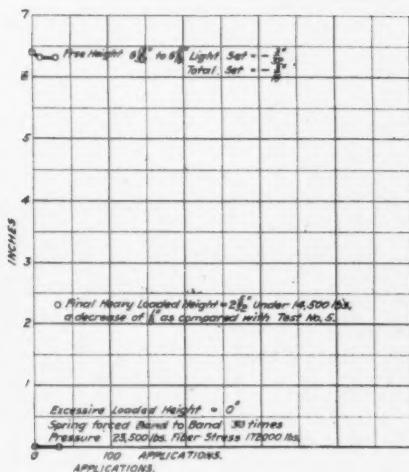 7
Free Height 6 " to 6 " Light Set = - "
Total Set = - "
6
5
4
INCHES
3
Final Heavy Loaded Height = 2 " Under 14,500 lbs.
a decrease of " as compared with Test No. 5.
2
1
Excessive Loaded Height = 0"
Spring forced Band to Band 30 times
Pressure 23,500 lbs. Fiber Stress 172000 lbs.
0 100 APPLICATIONS.
APPLICATIONS.